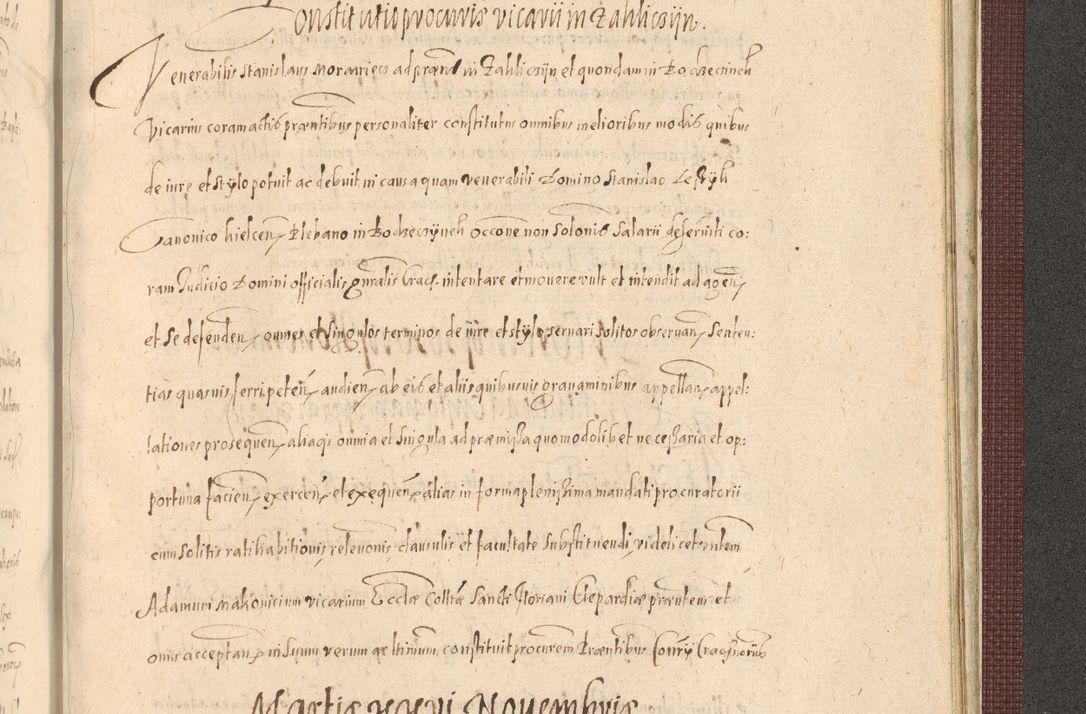 Constitutio procuris vicarii in Zahliczÿn
Venerabilis Stanislaus Morawiecz ad præns in Zahliczÿn et quondam in Bodzecinech
Vicarius coram actis præntibus personaliter constitutus omnibus melioribus modis quibus
de iure et stÿlo potuit ac debuit in causa quam venerabili Domino Stanislao
Canonico kielcen Plebano in Bodzeczÿneh occone non Solonis Salarii deserviti co:
ram Judicio Domini officialis gnralis Crac intentare et movere vult et intendit ad agen
et se defenden omnes et singulos terminos de iure et stÿlo servari solitos observan Senten:
tias quasvis ferri peten audien ab eis et aliis quibusvis gravaminibus appellan appel:
lationes prosequen aliaqs omnia et singula ad præmissa quomodolibet necessaria et op:
portuna facien exercen et exequen alias in forma plenissima mandati procuratorii
cum solitis ratihabitionis relevonis clausulis et facultate substituendi videlicet
Adamum Makonicium vicarium Ecclæ Colltæ Sancti Floriani Clepardiæ præntem et
onus acceptan in suum verum ac ltimum constituit procurem Præntibus
Martis xxvi Novembris